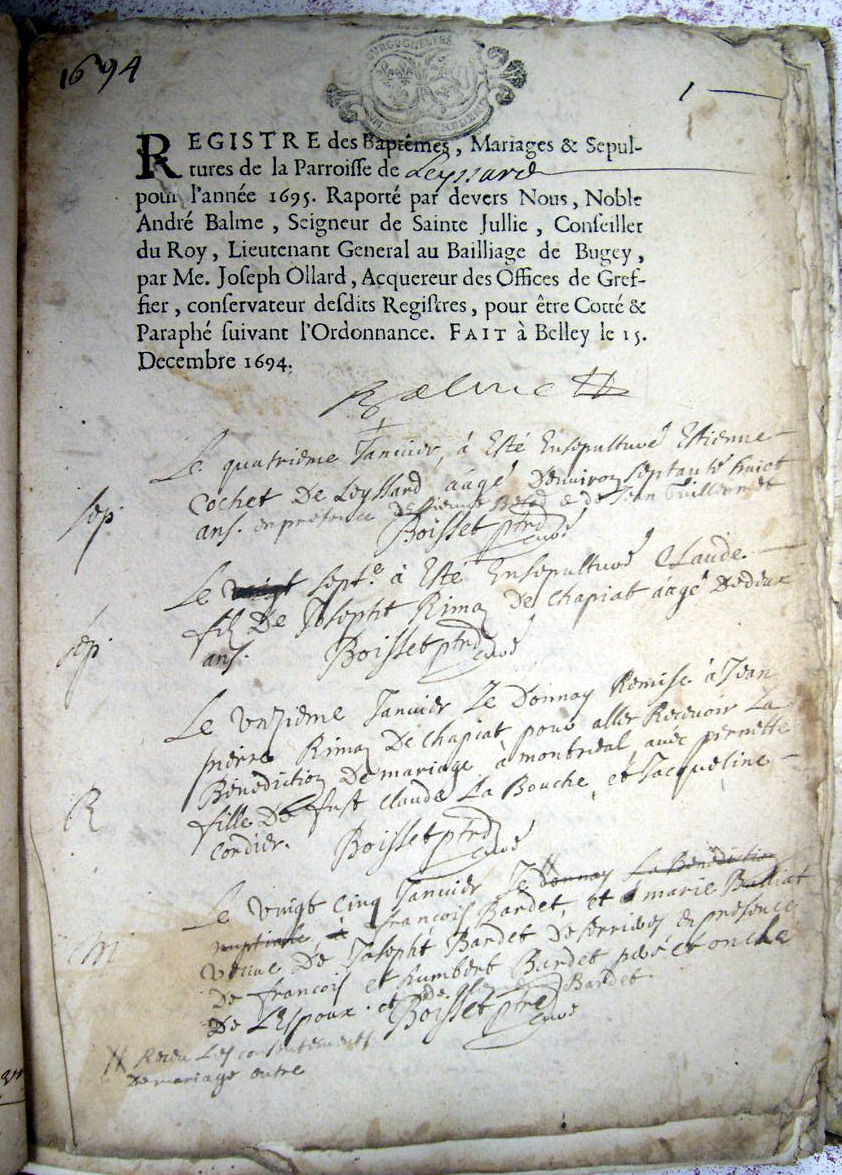 1694
1
REGISTRE des Baptêmes, Mariages & Sepul-
tures de la Parroisse de Leyssard
pour l'année 1695. Raporté par devers Nous, Noble
André Balme, Seigneur de Sainte Jullie, Conseiller
du Roy, Lieutenant General au Bailliage de Bugey,
par Me. Joseph Ollard, Acquereur des Offices de Gref-
fier, conservateur desdits Registres, pour être Cotté &
Paraphé suivant l'Ordonnance. FAIT à Belley le 15.
Decembre 1694.
Balme
Le quatrieme Januier, à Esté Ensepulturé Estienne
sep. Cochet De Leyssard aágé Denuiron septante huict
ans. en presence de Estienne & de Jean Guillermet
Boisset ptre curé
Le vingt sept.e à Esté Ensepulturé Claude
sep. filz De Josepht Rimoz De Chapiat aágé Dedeux
ans. Boisset ptre curé
Le Vnzieme Januier Je Donnay Remise à Jean
pierre Rimoz De Chapiat pour aller Receuoir La
Benediction De mariage à montreal, auec pernette
R fille De fust Claude La Bouche, et Jacqueline
Cordier. Boisset ptre curé
Le Vingt Cinq Januier Je donnay La Benediction
M nuptiale, à francois Bardet, et à marie Balliat
Veuue De Josepht Bardet De serriers En presence
De francois et humbert Bardet peré et oncle
De L'Espoux. et de Bardet
Boisset ptre curé
Receu Les consentements
De mariage entre